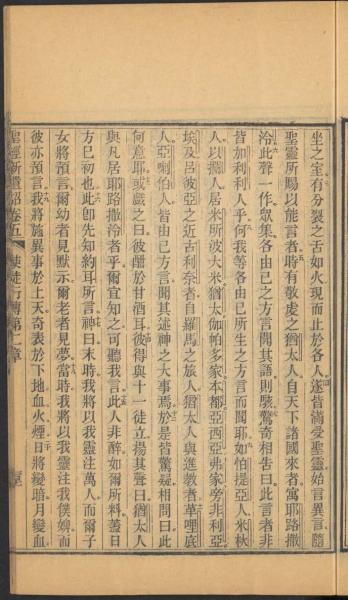 坐之室有分裂之舌如火現而止於各人遂皆滿受聖靈始言異言隨
聖靈所賜以能言者時有敬虔之猶太人自天下諸國來者寓耶路撒
泠此聲一作眾集各由己之方言聞其語則駭驚奇相告曰此言者非
皆加利利人乎何我等各由己所生之方言而聞耶如怕提亞人米秋
人以攔人居米所波大米猶太伽帕多家本都亞西亞弗家旁非利亞
埃及呂彼亞之近古利奈者自羅馬之旅人猶太人與進教者革哩底
人亞喇伯人皆由己方言聞其述神之大事焉於是皆驚疑相問曰此
何意耶或戲之曰彼醺於甘酒耳彼得與十一徒立揚其聲曰猶太人
與凡居耶路撒泠者乎爾宜知之可聽我言此人非醉如爾所料蓋日
方巳初也此卽先知約耳所言神曰末時我將以我靈注萬人而爾子
女將預言爾幼者見默示爾老者見夢當時我將以我靈注我僕婢而
彼亦預言我將施異事於上天奇表於下地血火煙日將變暗月變血
聖經新遺詔卷五 使徒行傳第二章